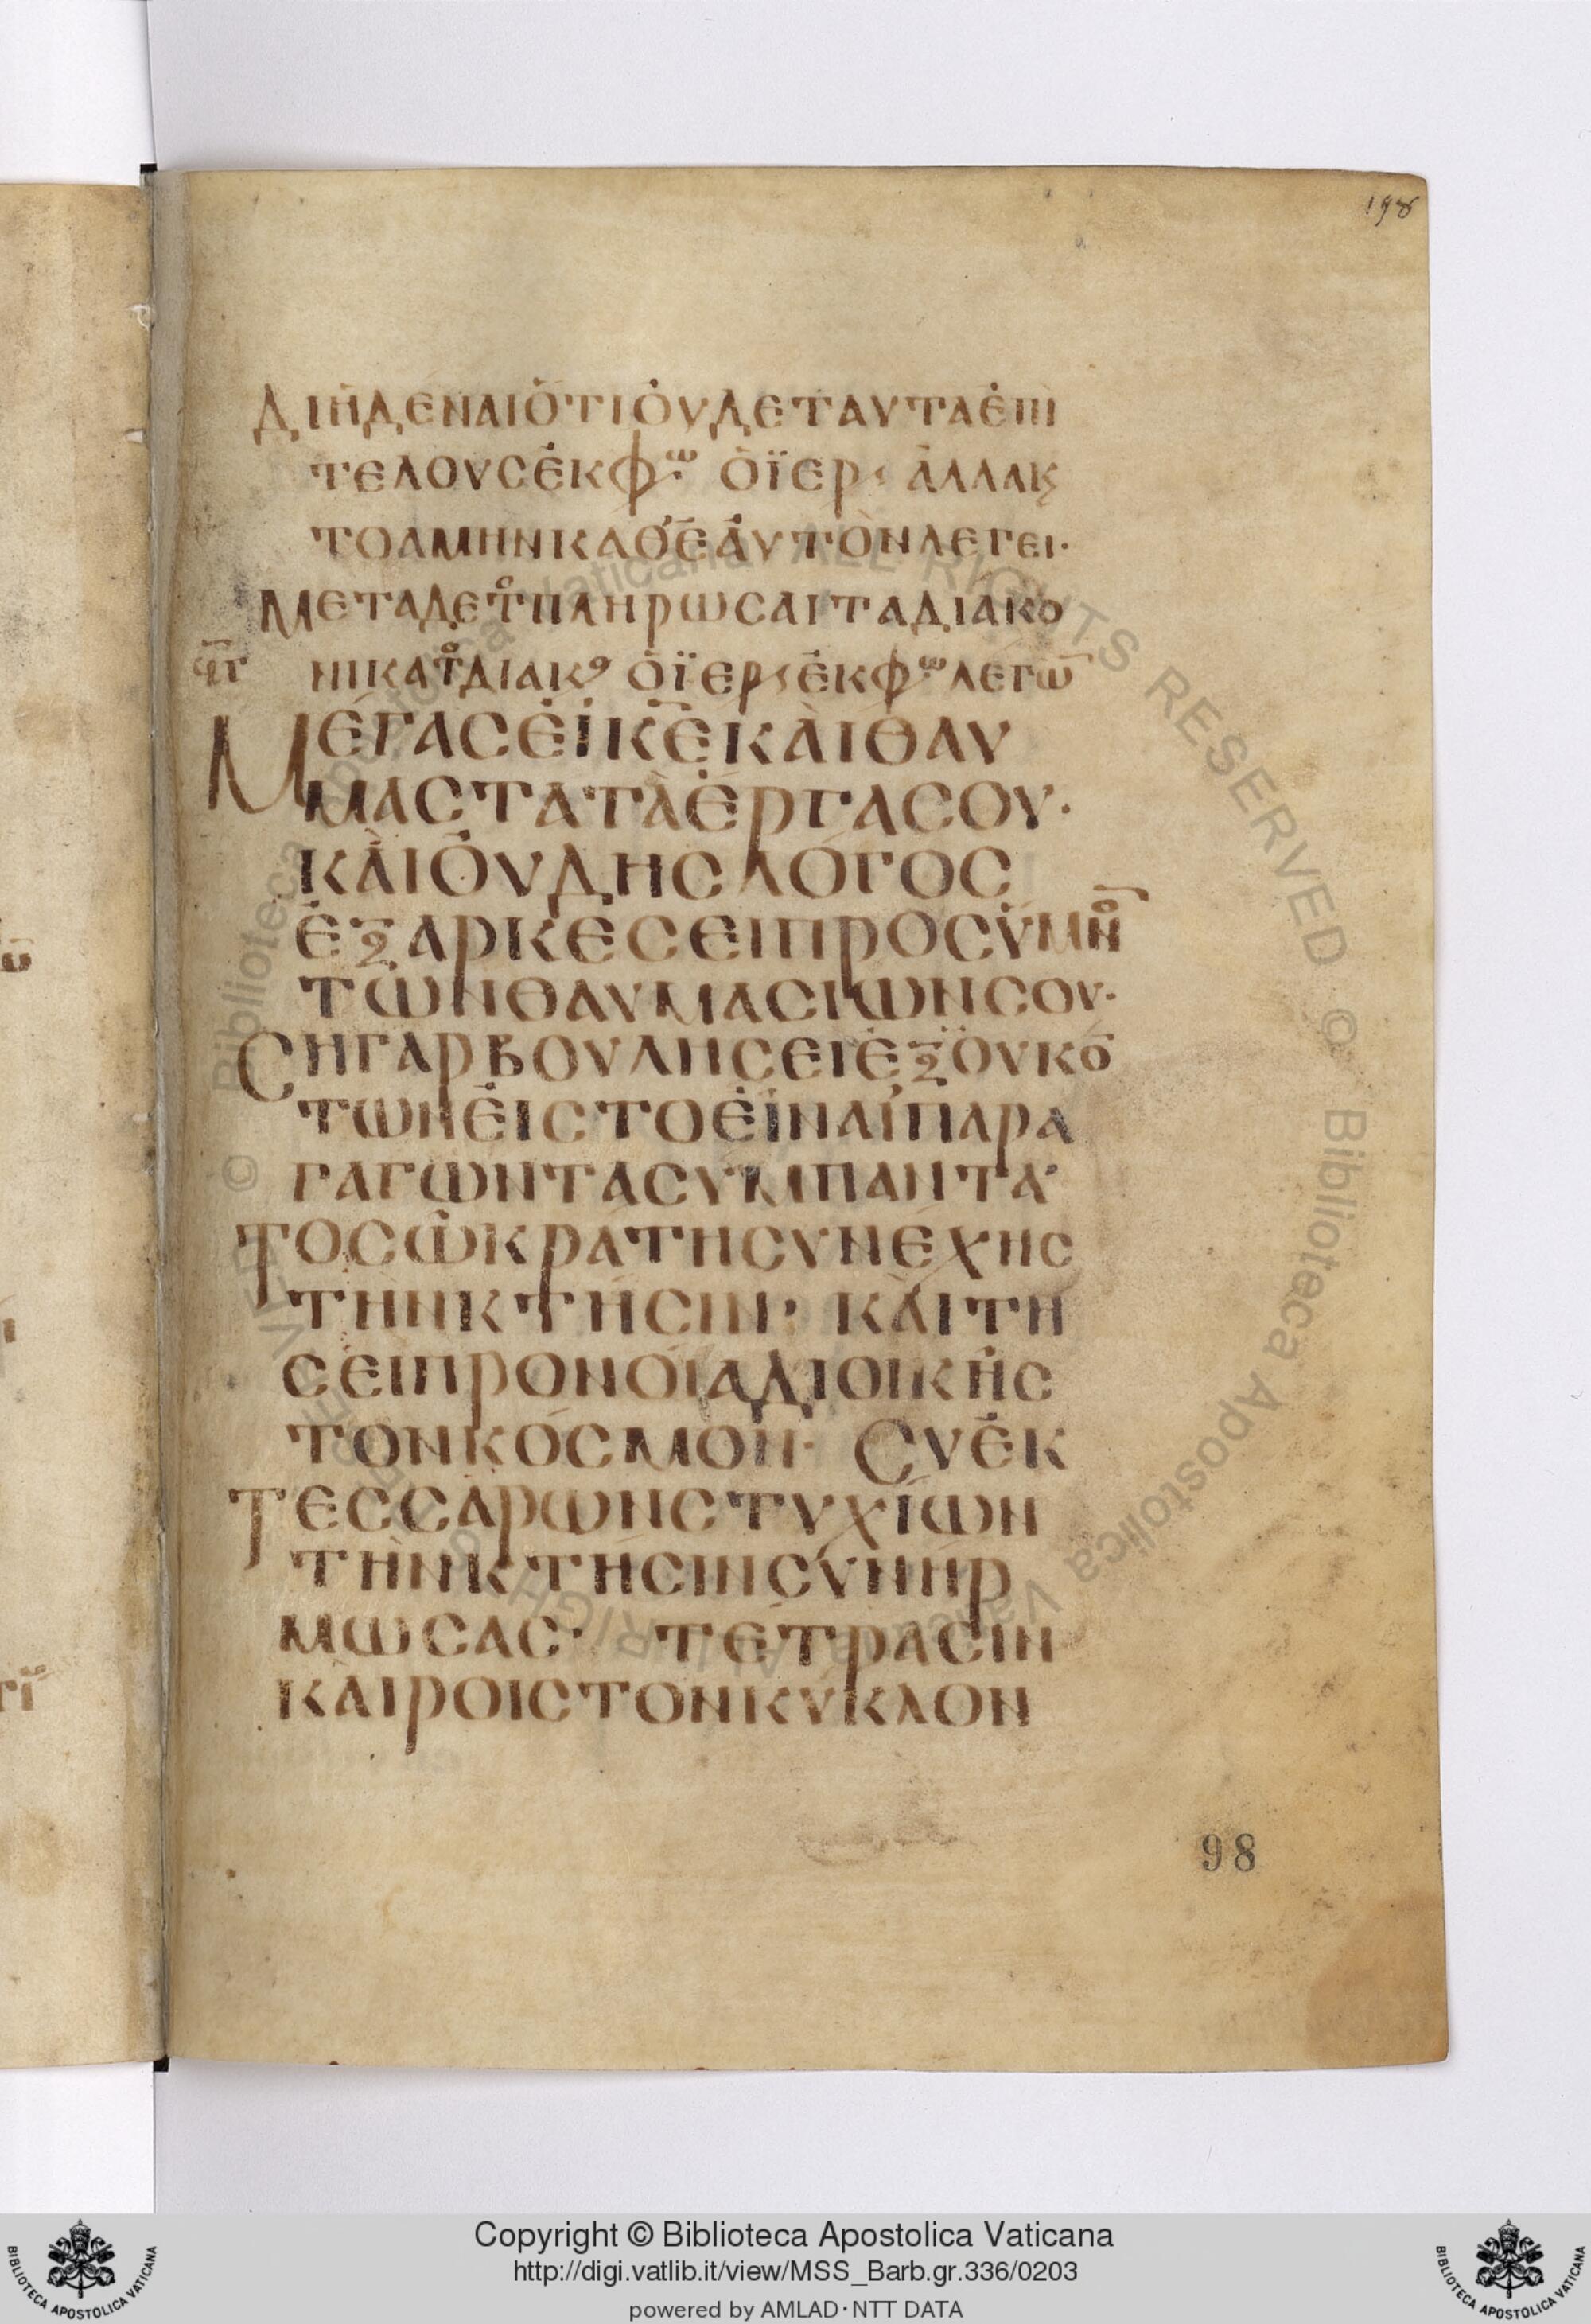 198
ΔΙΗΔΕΝΑΙὍΤΙὀΥΔΕΤΑΥΤΑἐΠΙ
ΤΕΛΟΥϹἐΚΦω ὁΪΕΡ ἀΛΛΑΚ
ΤΟΑΜΗΝΚΑΘἑΑΥΤῸΝΛΕΓΕΙ·
ΜΕΤΑΔΕΤὸΠΛΗΡΩϹΑΙΤΑΔΙΑΚΟ
ΝΙΚΑΤὸΔΙΑΚ ὁΪΕΡἐΚΦωΛΕΓΩ̅
ΜΕΓΑϹἐΙΚ̅Ε̅ΚΑῚΘΑΥ
ΜΑϹΤΑΤᾺἔΡΓΑϹΟΥ·
ΚΑῚὀΥΔΗϹΛΌΓΟϹ
ἐΞΑΡΚΕϹΕΙΠΡΟϹΫΜΝΟ̅
ΤΩ͂ΝΘΑΥΜΑϹΙΩΝϹΟΥ·
ϹΗΓᾺΡΒΟΥΛΗϹΕΙἐΞΟΥΚΟ̅
ΤΩΝἐΙϹΤΟἐΙΝΑΙΠΑΡΑ
ΓΑΓΩΝΤΑϹΥΜΠΑΝΤΑ·
ΤΟϹΩΚΡΆΤΗϹΥΝΈΧΗϹ
ΤῊΝΚΤΊϹΙΝ· ΚΑῚΤΗ
ϹΕΙΠΡΟΝΟΊΑΔΙΟΙΚΗϹ
ΤΟΝΚΌϹΜΟΝ· ϹΥἐΚ
ΤΕϹϹΆΡΩΝϹΤΥΧΊΩΝ
ΤῊΝΚΤΉϹΙΝϹΥΝΗΡ
ΜΩϹΑϹ· ΤΈΤΡΑϹΙΝ
ΚΑΙΡΟΙϹΤΟΝΚΎΚΛΟΝ
98
Copyright © Biblioteca Apostolica Vaticana
http://digi.vatlib.it/view/MSS_Barb.gr.336/0203
powered by AMLAD·NTT DATA
BIBLIOTECA APOSTOLICA VATICANA
BIBLIOTECA APOSTOLICA VATICANA